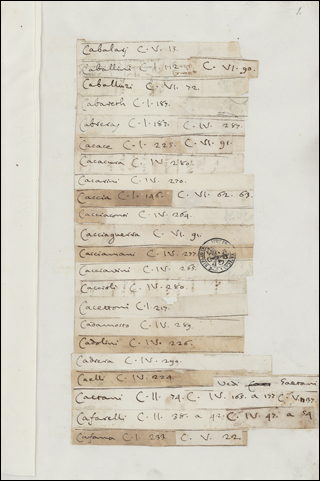 1.
Cabalasi C. V. 15.
Caballini C. I. 112. C. VI. 90.
Caballuzi C. VI. 72.
Cabareth C. I. 187.
Cabreras C. I. 187. C. IV. 287.
Cacace C. I. 225. C. VI. 91.
Cacacura C. IV. 280.
Cacarini C. IV. 270.
Caccia C. I. 196. C. VI. 62. 63.
Cacciaconti C. IV. 264.
Cacciaguerra C. VI. 91.
Cacciamani C. IV. 277.
Cacciardini C. IV. 268.
Caccioli C. IV. 280.
Cacettoni C. I. 217.
Cadamosto C. IV. 289.
Cadolini C. IV. 226.
Cadrera C. IV. 290.
Caelli C. IV. 224.
Ved. Gaetani
Caetani C. II. 74. C. IV. 103. a 177. C. V. 137.
Cafarelli C. II. 38. a 42. C. IV. 47. a 54.
Cafana C. I. 233. C. V. 22.